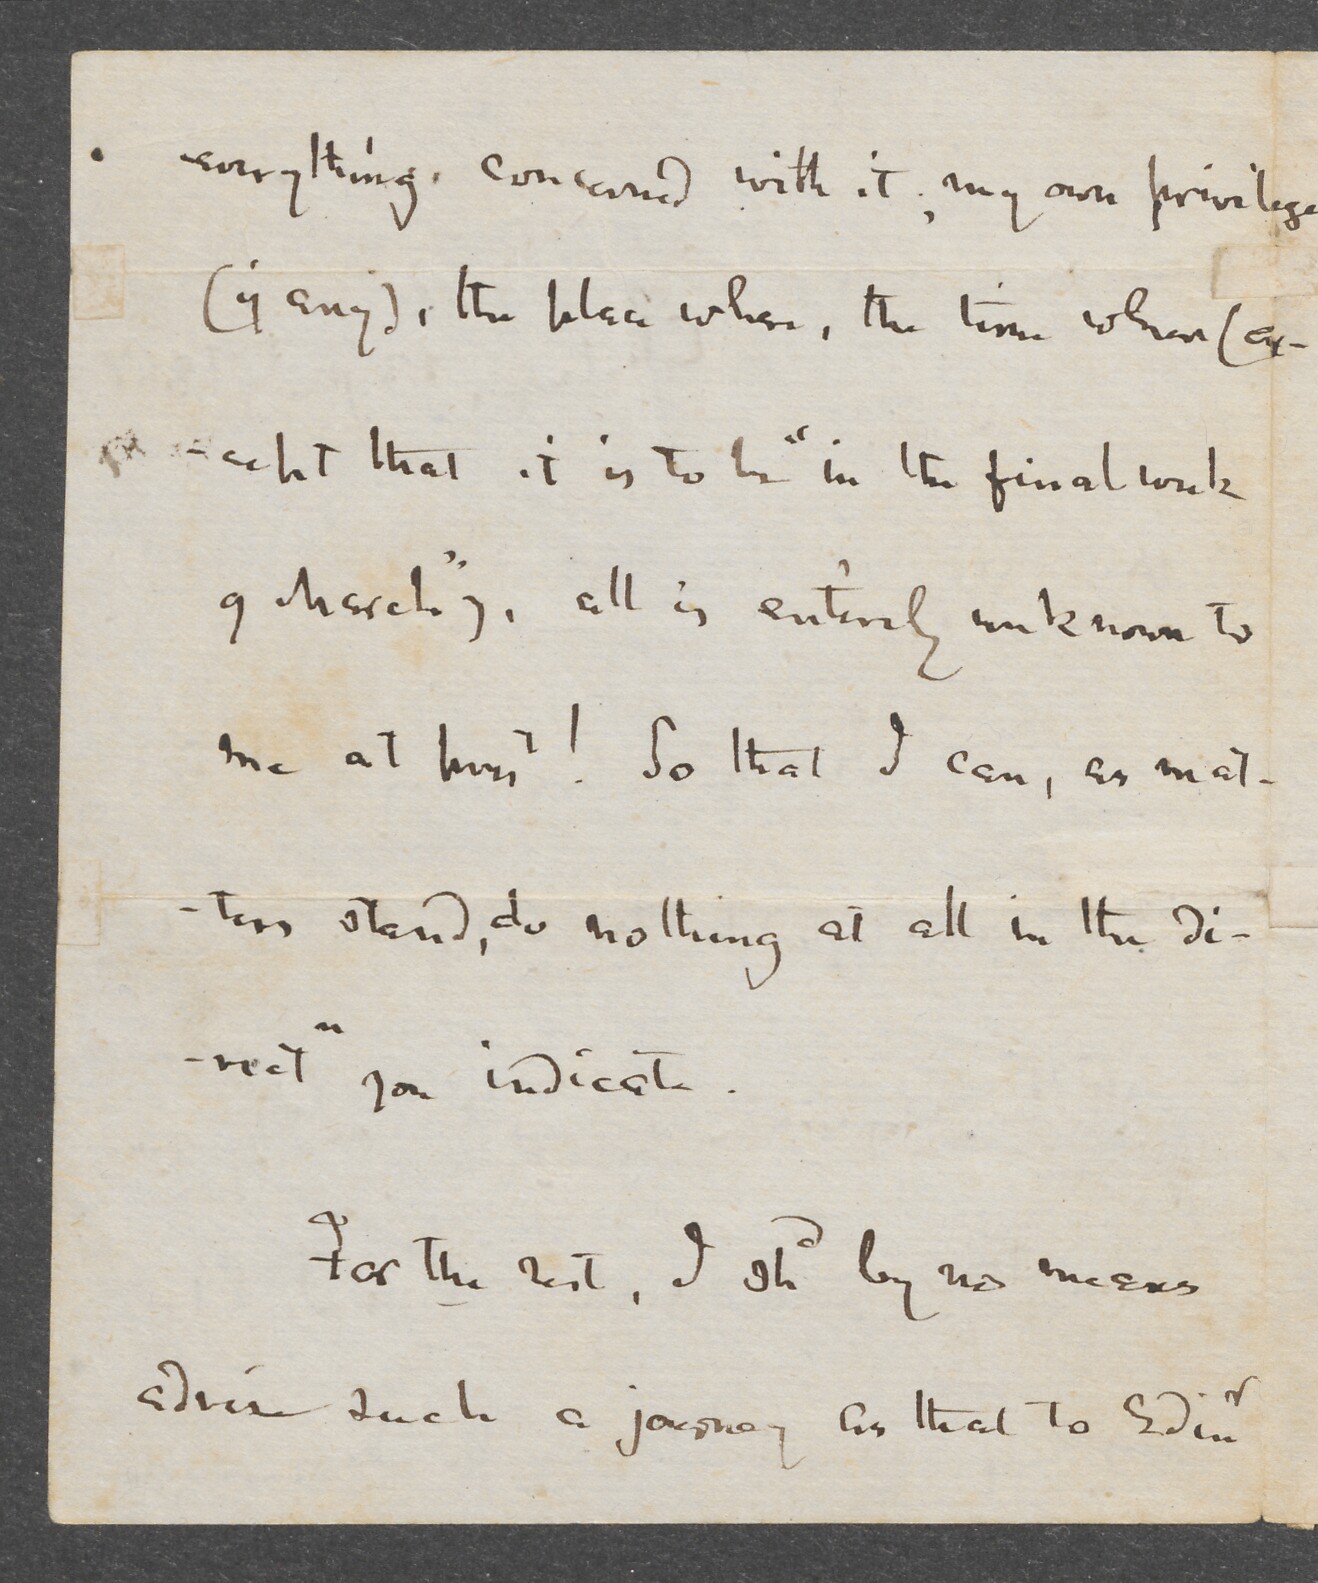 everything concerned with it; my own privilege
(if any), the place where, the time when (ex-
-cept that it is to be "in the final week
of March"), all is entirely unknown to
me at prest! So that I can, as mat-
-ters stand, do nothing at all in the di-
-rectn you indicate.
For the rest, I shd by no means
advise such a journey as that to Edinr